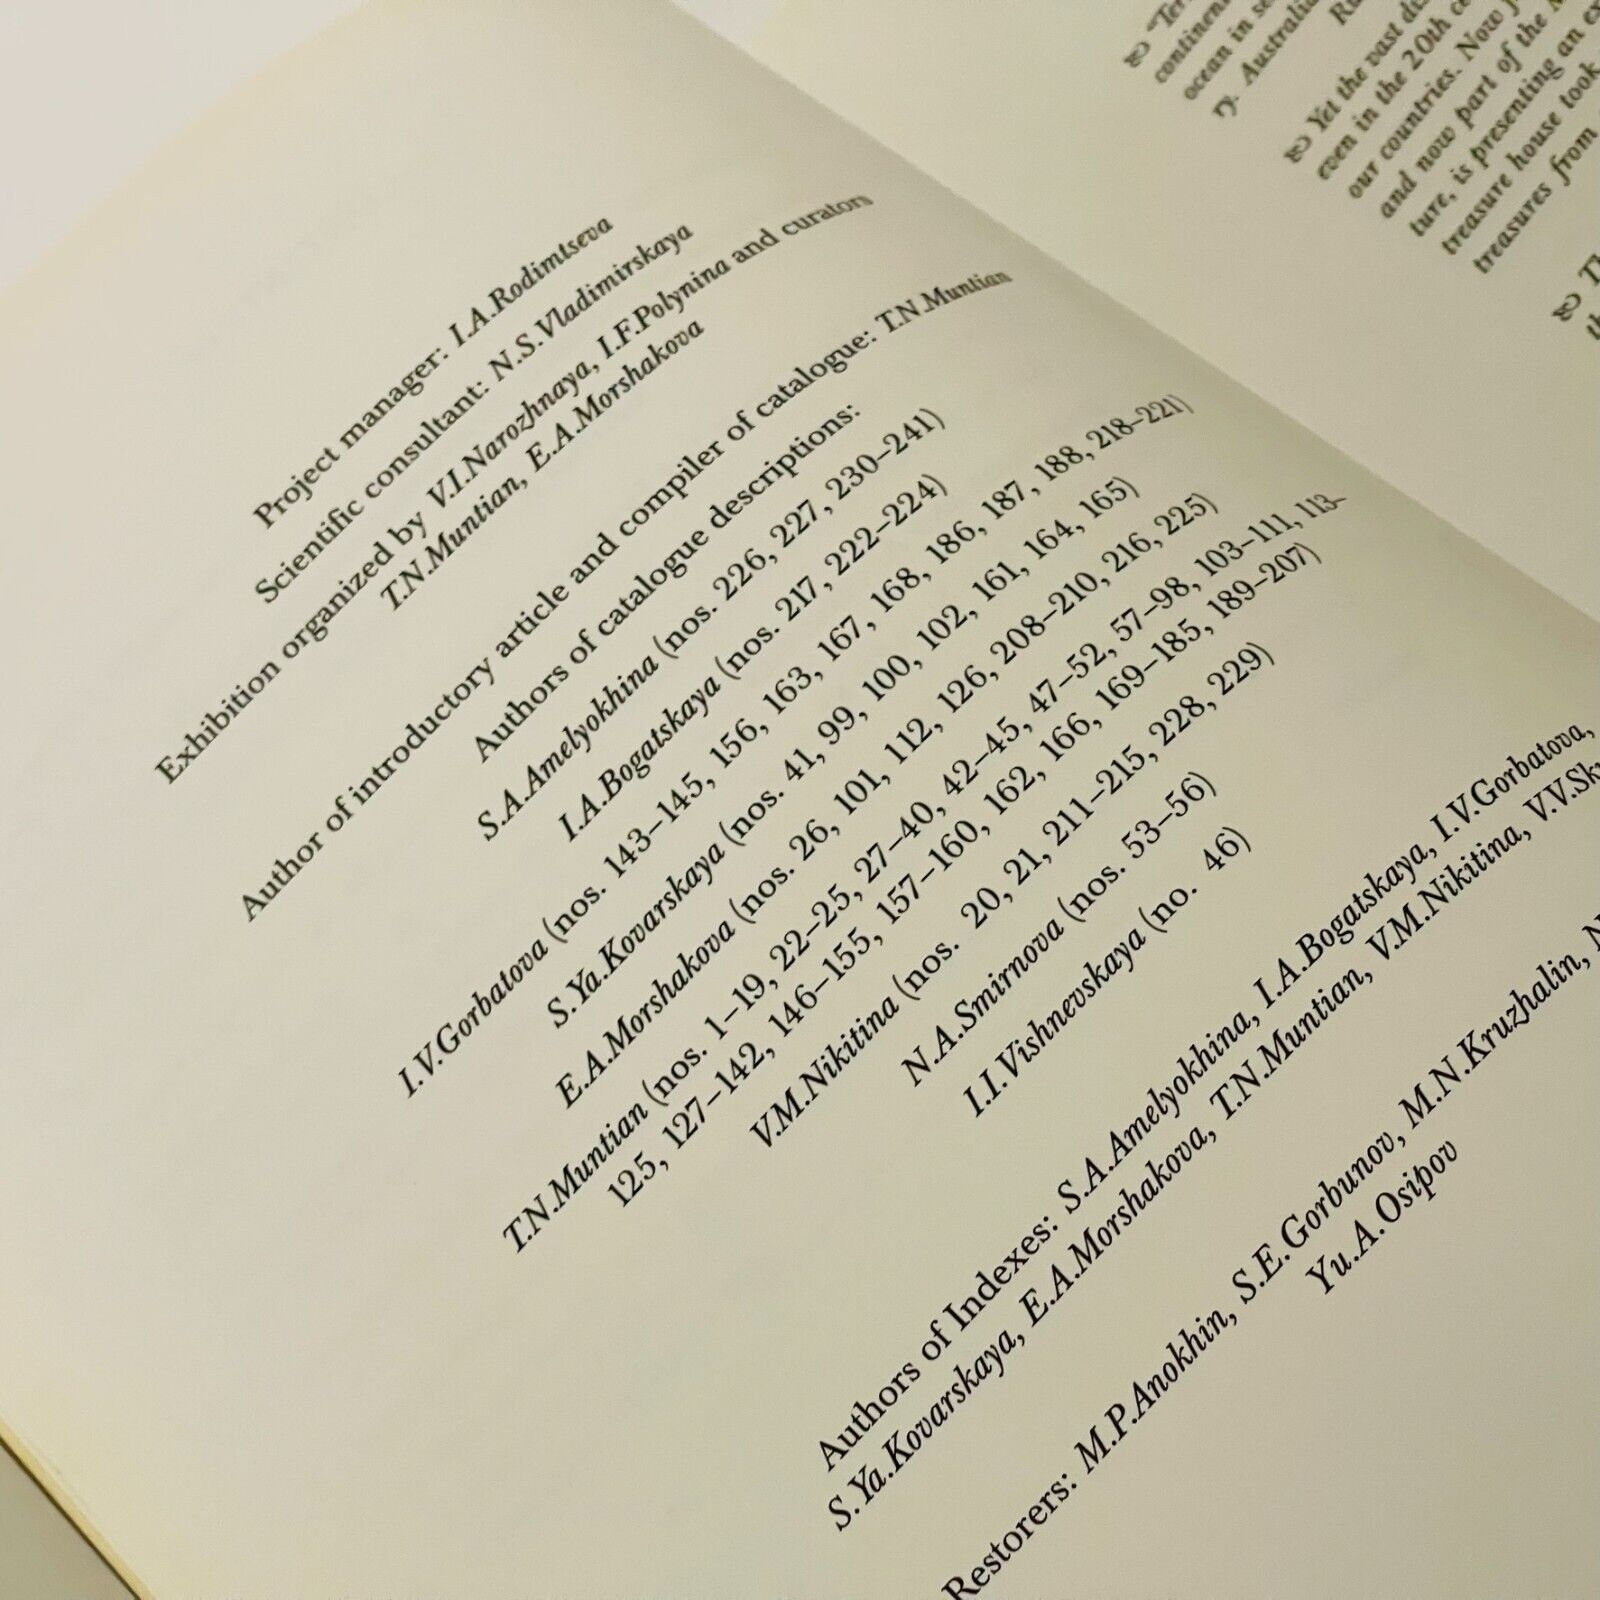 Project manager: I.A.Rodimtseva
Scientific consultant: N.S.Vladimirskaya
Exhibition organized by V.I.Narozhnaya, I.F.Polynina and curators
T.N.Muntian, E.A.Morshakova
Author of introductory article and compiler of catalogue: T.N.Muntian
Authors of catalogue descriptions:
S.A.Amelyokhina (nos. 226, 227, 230–241)
I.A.Bogatskaya (nos. 217, 222–224)
I.V.Gorbatova (nos. 143–145, 156, 163, 167, 168, 186, 187, 188, 218–221)
S.Ya.Kovarskaya (nos. 41, 99, 100, 102, 161, 164, 165)
E.A.Morshakova (nos. 26, 101, 112, 126, 208–210, 216, 225)
T.N.Muntian (nos. 1–19, 22–25, 27–40, 42–45, 47–52, 57–98, 103–111, 113–
125, 127–142, 146–155, 157–160, 162, 166, 169–185, 189–207)
V.M.Nikitina (nos. 20, 21, 211–215, 228, 229)
N.A.Smirnova (nos. 53–56)
I.I.Vishnevskaya (no. 46)
Authors of Indexes: S.A.Amelyokhina, I.A.Bogatskaya, I.V.Gorbatova,
S.Ya.Kovarskaya, E.A.Morshakova, T.N.Muntian, V.M.Nikitina, V.V.Sk
Restorers: M.P.Anokhin, S.E.Gorbunov, M.N.Kruzhalin,
Yu.A.Osipov
continen
ocean in se
ry. Australia
Yet the vast
even in the 20th ce
our countries. Now
and now part of the
ture, is presenting an
treasure house took
treasures from